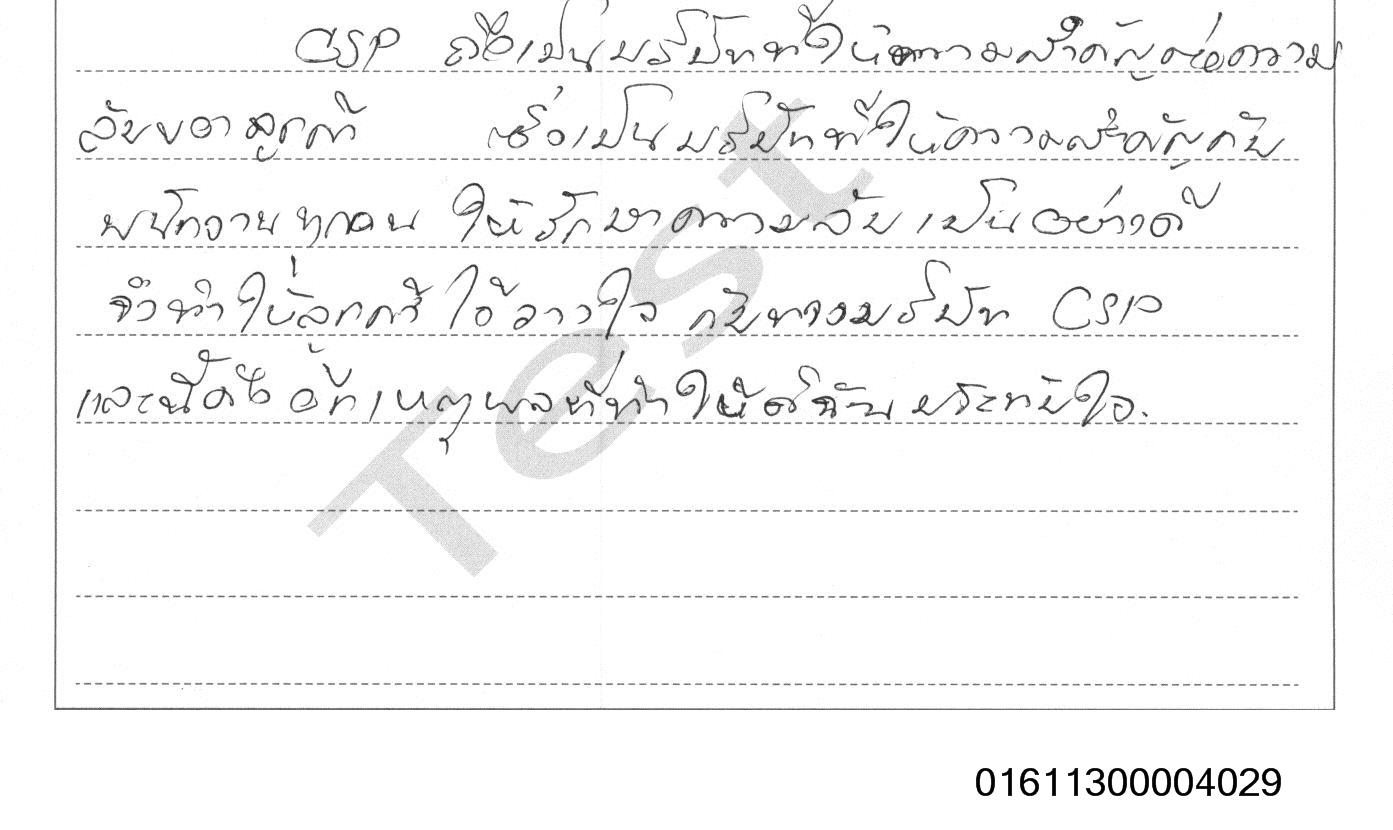 CSP ถือเป็นบริษัทที่ให้ความสำคัญต่อความ
ลับของลูกค้า ซึ่งเป็นบริษัทที่ให้ความสำคัญกับ
พนักงานทุกคน ให้รักษาความลับเป็นอย่างดี
จึงทำให้ลูกค้าไว้วางใจ กับทางบริษัท CSP
และนี้คือ เหตุผลที่ทำให้ดิฉันประทับใจ.
Test
01611300004029